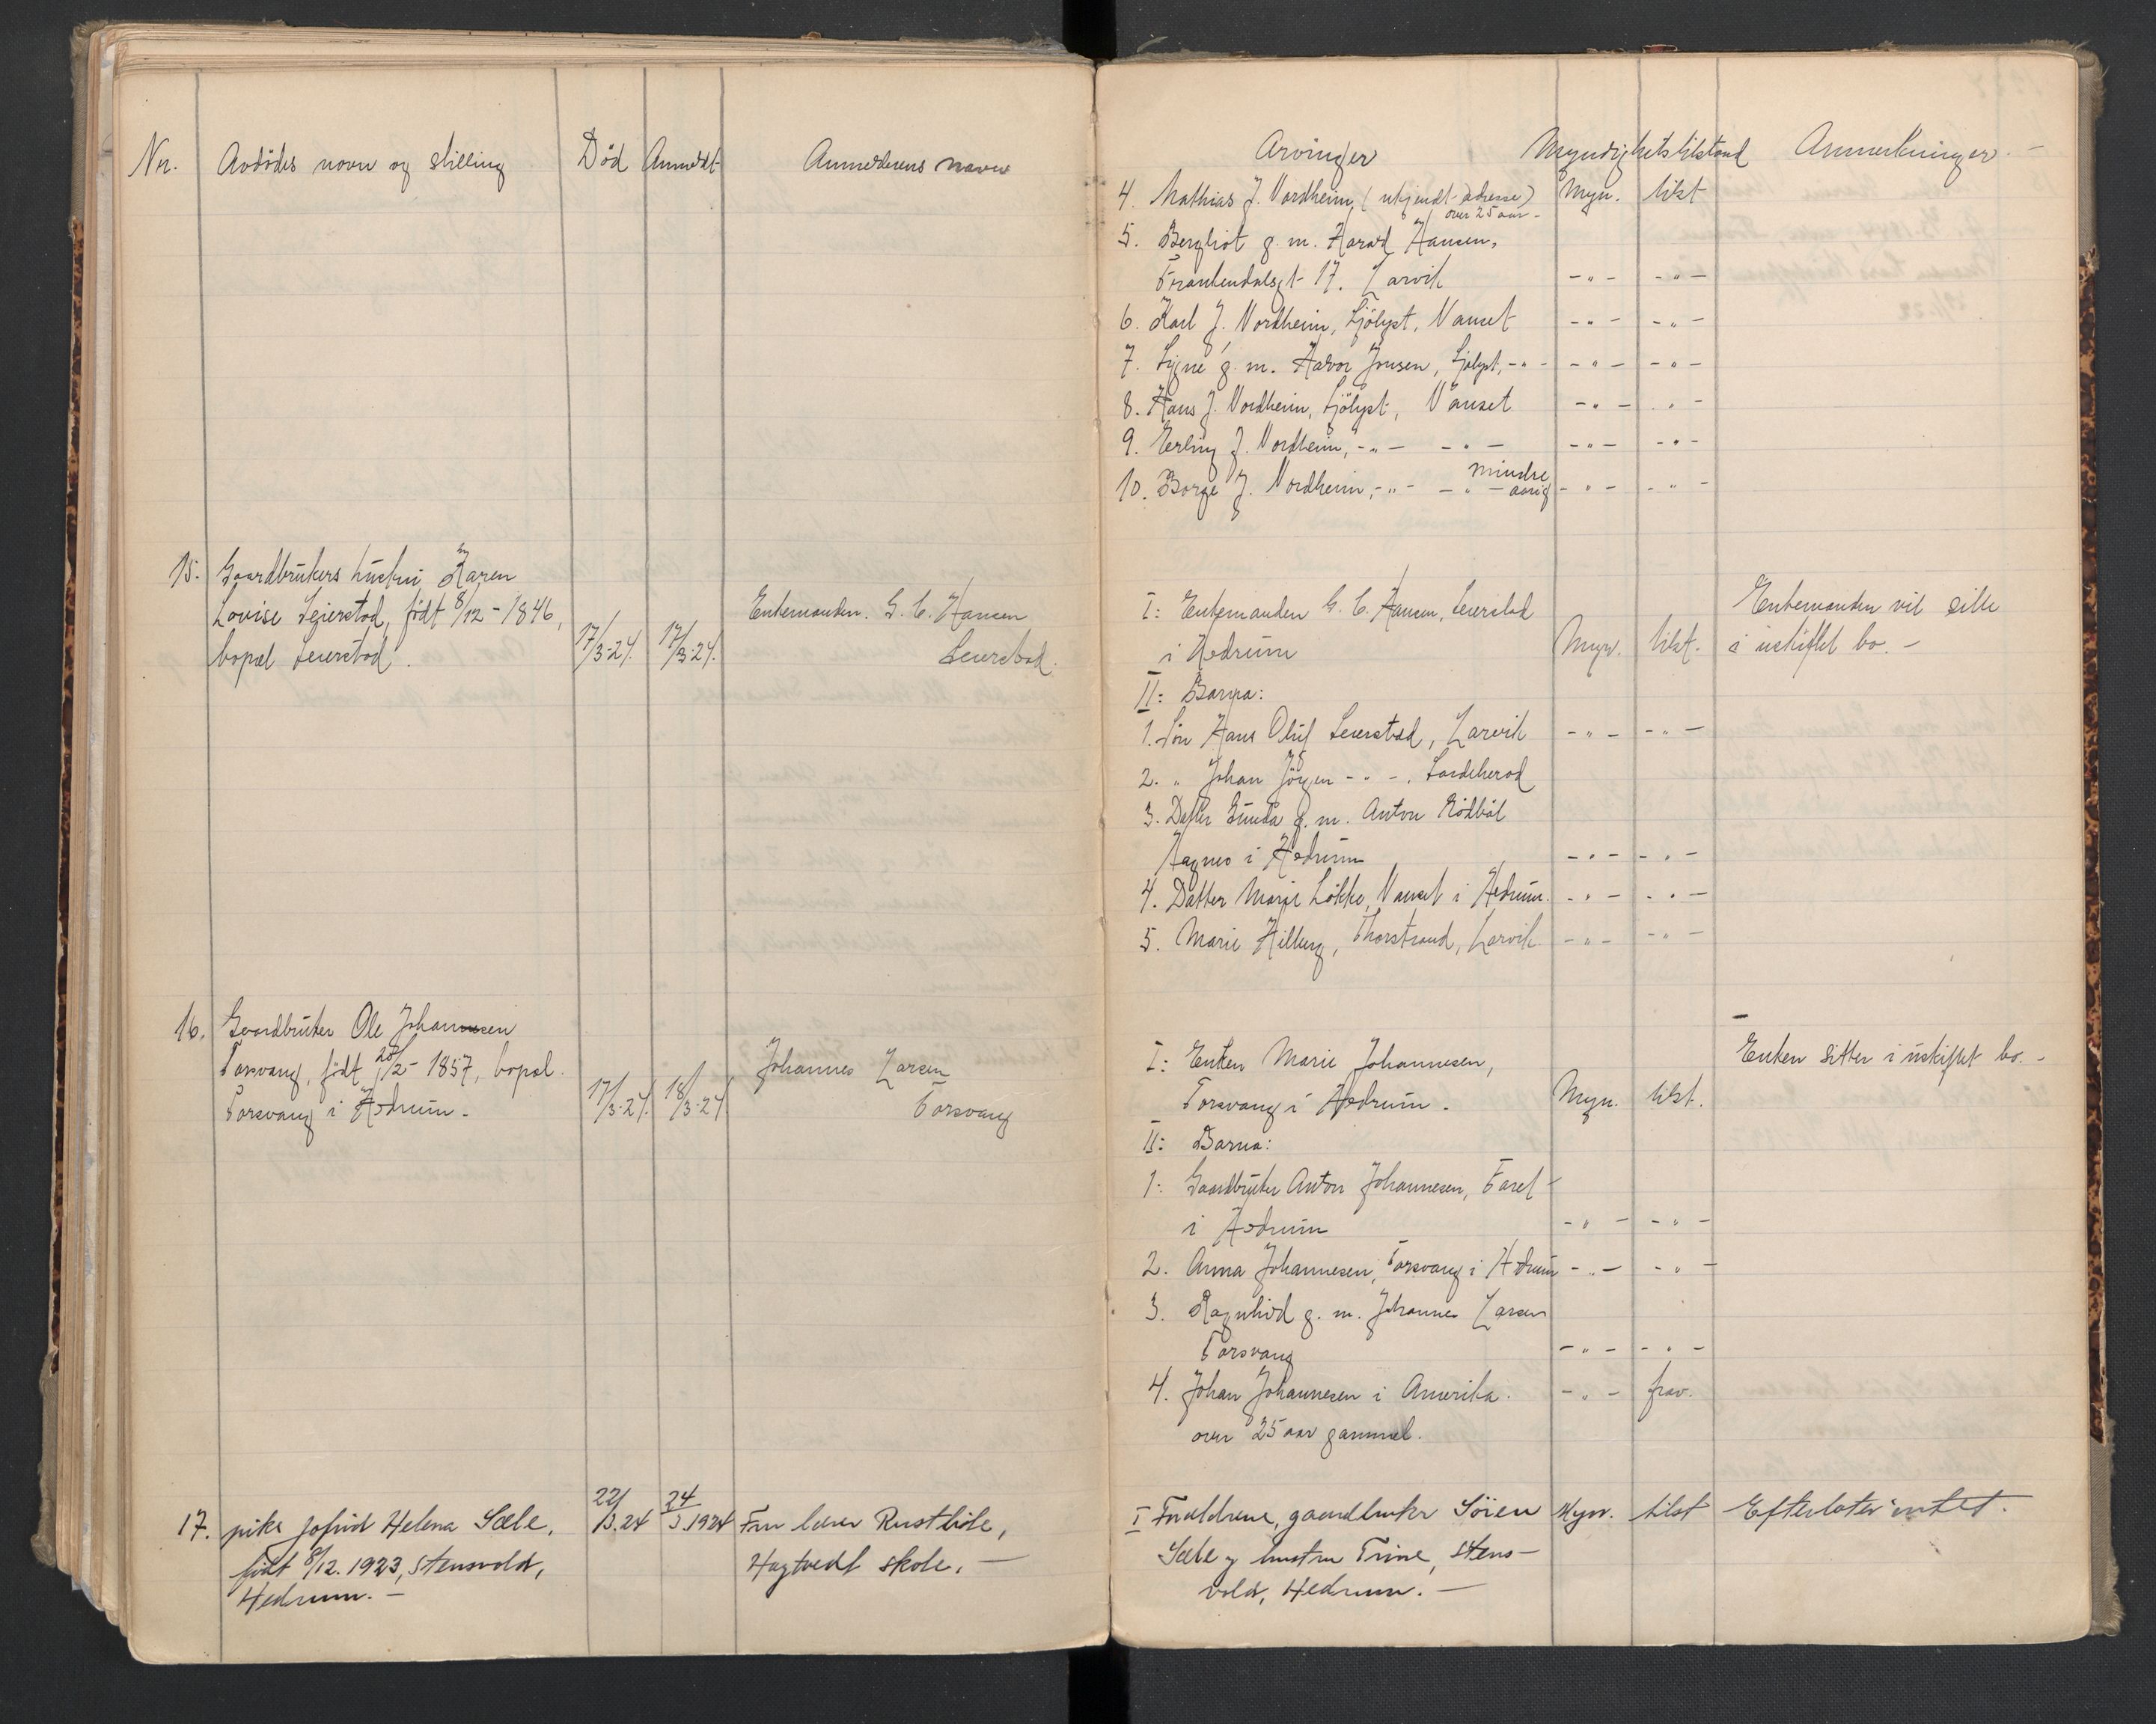 Nr. Avdödes navn og stilling Död Anmeldt Anmelderens navn
15. Gaardbrukers hustru Karen
Lovise Seierstad, födt 8/12-1846,
bopæl Seierstad. 17/3-24. 17/3-24. Enkemanden G. C. Hansen
Seierstad.
16. Gaardbruker Ole Johannesen
Torsvang, födt 20/2-1857, bopæl
Torsvang i Hedrum. 17/3-24. 18/3-24. Johannes Larsen
Torsvang
17. pike Jofrid Helena Sæle, 22/3.24 24/3.1924 Fru lærer Rustlide,
født 8/12.1923, Stensvold, Hagtvedt skole.
Hedrum. -
Arvinger Myndighetstilstand Anmerkninger. -
4. Mathias J. Nordheim, (ukjendt adresse) Myn. tilst
over 25 aar -
5. Bergliot g. m. Harald Hansen,
Frankendalsgt 17. Larvik -"- -"-
6. Karl J. Nordheim, Sjölyst, Nanset -"- -"-
7. Signe g. m. Halvor Jonsen, Sjölyst, -"- -"- -"-
8. Hans J. Nordheim, Sjölyst, Nanset -"- " -
9. Erling J. Nordheim, -"- -"- -"- -"-
10. Borge J. Nordheim, -"- -"- mindre
aarig -"- -"-
I: Enkemanden G. C. Hansen, Seierstad Enkemanden vil sitte
i Hedrum Myn. tilst. i uskiftet bo. -
II: Barna:
1. Sön Hans Oluf Seierstad, Larvik -"- -"-
2. " Johan Jörgen -"-,
3. Datter Gunda g. m. Anton Rödböl
Hagnes i Hedrum -"- -"-
4. Datter Marie Lökke, Nanset i Hedrum. -"- -"-
5. Marie Hilberg, Thorstrand, Larvik -"- -"-
I: Enken Marie Johannesen, Enken sitter i uskiftet bo. -
Torsvang i Hedrum. Myn. tilst.
II: Barna:
1: Gaardbruker Anton Johannesen,
i Hedrum -"- -"-
2. Anna Johannesen, Torsvang i Hedrum -"- -"-
3. Ragnhild g. m. Johannes Larsen
Torsvang -"- -"-
4. Johan Johannesen i Amerika. -"- frav.
over 25 aar gammel.
I Forældrene, gaardbruker Sören Myn. tilst Efterlater intet.
Sæle og hustru Trine, Stens-
vold, Hedrum. -